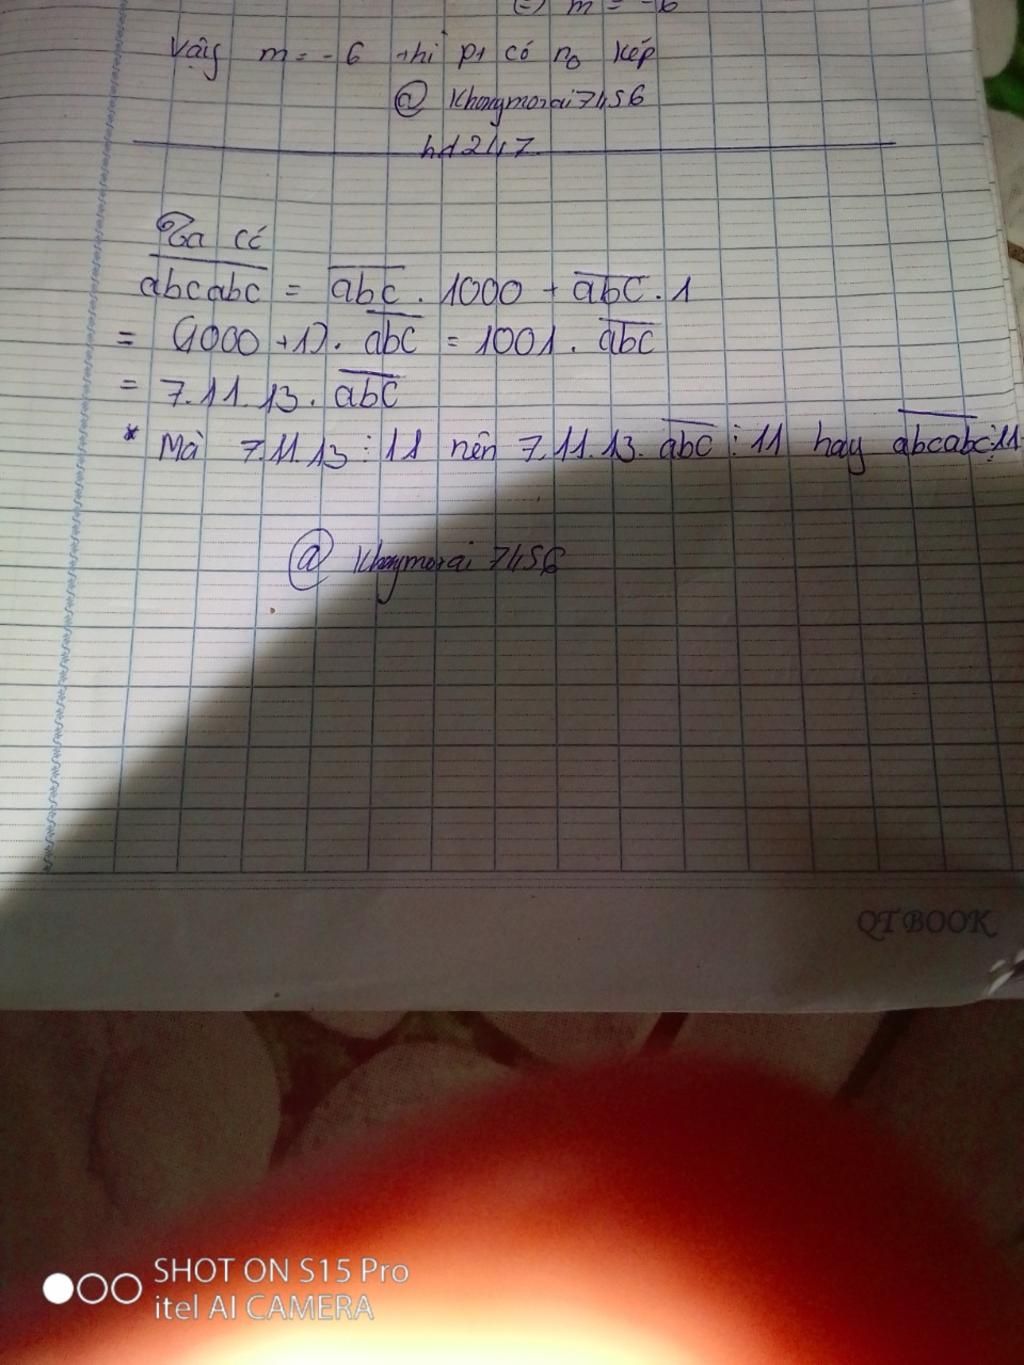 (=) m = -6
Vậy m = - 6 thì pt có n0 kép
@ Khongmorai7456
hd247
Ta có
abcabc = abc . 1000 + abc . 1
= (1000 +1). abc = 1001 . abc
= 7.11.13. abc
* Mà 7.11.13 ⋮ 11 nên 7.11.13. abc ⋮ 11 hay abcabc ⋮ 11
@ Khongmorai 7456
QT BOOK
SHOT ON S15 Pro
itel AI CAMERA